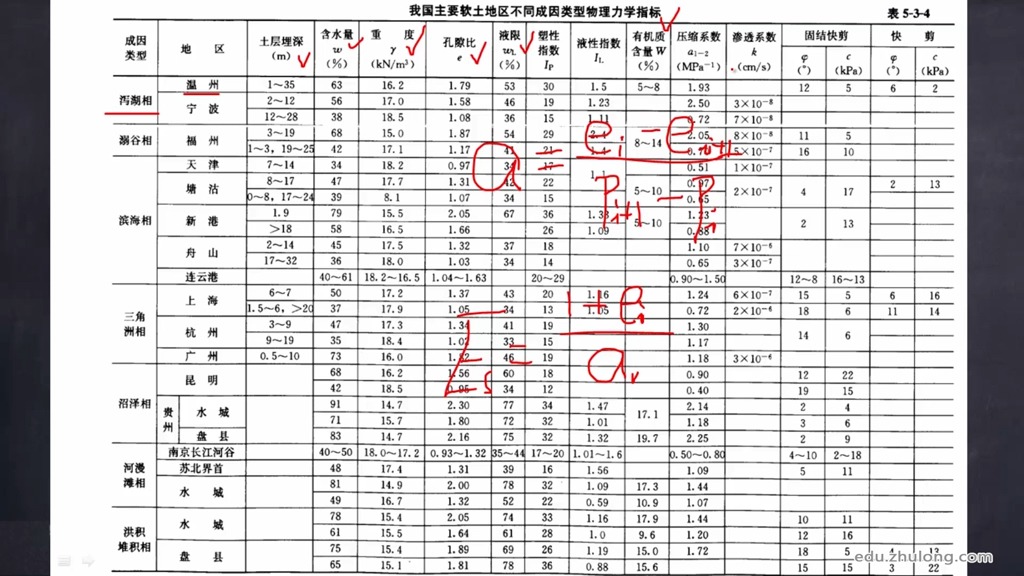 我国主要软土地区不同成因类型物理力学指标 表5-3-4
成因类型 地区 土层埋深(m) 含水量w(%) 重度γ(kN/m³) 孔隙比e 液限wL(%) 塑性指数IP 液性指数IL 有机质含量W(%) 压缩系数a1-2(MPa⁻¹) 渗透系数k(cm/s) 固结快剪 快剪
φ(°) c(kPa) φ(°) c(kPa)
泻湖相 温州 1~35 63 16.2 1.79 53 30 1.5 5~8 1.93 12 5 6 2
宁波 2~12 56 17.0 1.58 46 19 1.23 2.50 3×10⁻⁸
12~28 38 18.5 1.08 36 15 1.11 0.72 7×10⁻⁸
溺谷相 福州 3~19 68 15.0 1.87 54 29 8~14 2.05 8×10⁻⁸ 11 5
1~3,19~25 42 17.1 1.17 41 21 5×10⁻⁷ 16 10
滨海相 天津 7~14 34 18.2 0.97 34 17 0.51 1×10⁻⁷
塘沽 8~17 47 17.7 1.31 42 22 5~10 0.97 2×10⁻⁷ 4 17 2 13
0~8,17~24 39 8.1 1.07 34 15 0.65
新港 1.9 79 15.5 2.05 67 36 5~10 1.23 2 13
>18 58 16.5 1.66 26 1.09 0.88
舟山 2~14 45 17.5 1.32 37 18 1.10 7×10⁻⁶
17~32 36 18.0 1.03 34 14 0.65 3×10⁻⁷
连云港 40~61 18.2~16.5 1.04~1.63 20~29 0.90~1.50 12~8 16~13
三角洲相 上海 6~7 50 17.2 1.37 43 20 1.16 1.24 6×10⁻⁷ 15 5 6 16
1.5~6,>20 37 17.9 1.05 34 13 1.05 0.72 2×10⁻⁶ 18 6 11 14
杭州 3~9 47 17.3 1.34 41 19 1.30 14 6
9~19 35 18.4 1.02 33 15 1.17
广州 0.5~10 73 16.0 46 19 1.18 3×10⁻⁶
沼泽相 昆明 68 16.2 1.56 60 18 0.90 12 22
42 18.5 0.95 34 12 0.40 19 15
贵州 水城 91 14.7 2.30 77 34 1.47 17.1 2.14 2 4
71 15.7 1.80 72 32 1.01 1.18 3 6
盘县 83 14.7 2.16 75 32 1.32 19.7 2.25 2 9
河漫滩相 南京长江河谷 40~50 18.0~17.2 0.93~1.32 35~44 17~20 1.01~1.6 0.50~0.80 4~10 2~18
苏北界首 48 17.4 1.31 39 16 1.56 1.09 5 11
水城 81 14.9 2.00 78 32 1.09 17.3 1.44
49 16.7 1.32 52 22 0.59 10.9 1.07
洪积堆积相 水城 78 15.4 2.05 74 33 1.16 17.9 1.44 10 11
61 15.5 1.64 61 28 1.0 9.6 1.20 12 16
盘县 75 15.4 1.89 69 26 1.19 15.0 1.72 18 5 4 13
65 15.1 1.81 78 36 0.88 15.6 15 15 3 22
a = (ei − ei+1) / (Pi+1 − Pi)
Es = (1 + ei) / a
edu.zhulong.com